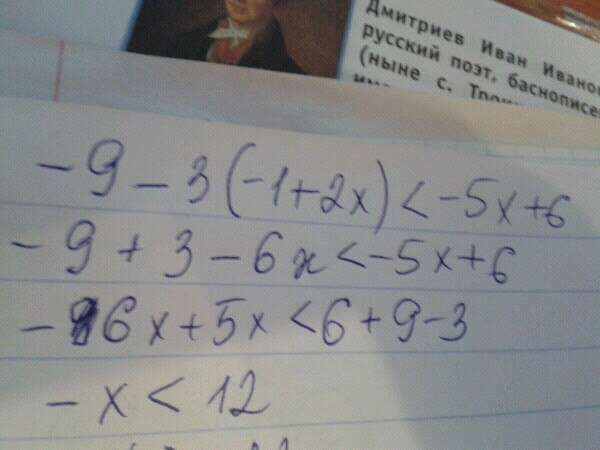 Дмитриев Иван
русский поэт, баснописе
(ныне с.
-9-3(-1+2x)<-5x+6
-9+3-6x<-5x+6
-6x+5x<6+9-3
-x<12